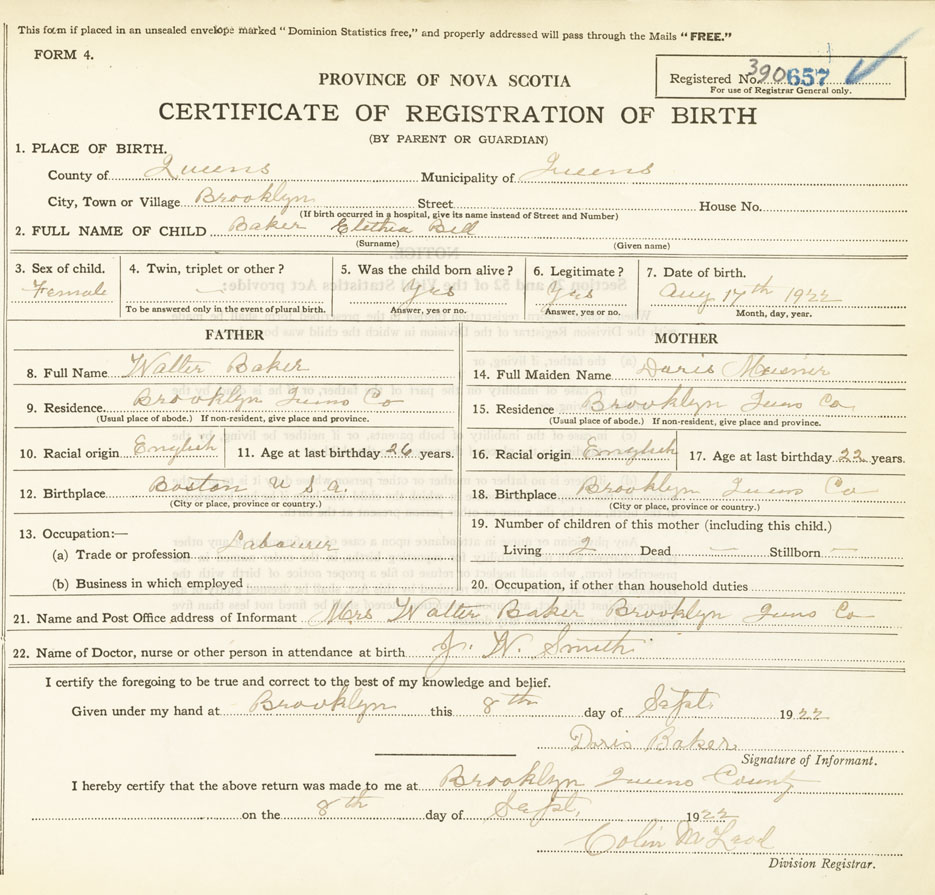 This form if placed in an unsealed envelope marked "Dominion Statistics free," and properly addressed will pass through the Mails "FREE."
FORM 4.
Registered No. 390 657
For use of Registrar General only.
PROVINCE OF NOVA SCOTIA
CERTIFICATE OF REGISTRATION OF BIRTH
(BY PARENT OR GUARDIAN)
1. PLACE OF BIRTH.
County of Queens Municipality of Queens
City, Town or Village Brooklyn Street House No.
(If birth occurred in a hospital, give its name instead of Street and Number)
2. FULL NAME OF CHILD Baker Elethia Bell
(Surname) (Given name)
3. Sex of child. 4. Twin, triplet or other? 5. Was the child born alive? 6. Legitimate? 7. Date of birth.
Female Yes Yes Aug 17th 1922
To be answered only in the event of plural birth. Answer, yes or no. Answer, yes or no. Month, day, year.
FATHER
8. Full Name Walter Baker
9. Residence Brooklyn Queens Co
(Usual place of abode.) If non-resident, give place and province.
10. Racial origin English 11. Age at last birthday 26 years.
12. Birthplace Boston U S A.
(City or place, province or country.)
13. Occupation:—
(a) Trade or profession Labourer
(b) Business in which employed
MOTHER
14. Full Maiden Name Doris Meisner
15. Residence Brooklyn Queens Co
(Usual place of abode.) If non-resident, give place and province.
16. Racial origin English 17. Age at last birthday 22 years.
18. Birthplace Brooklyn Queens Co
(City or place, province or country.)
19. Number of children of this mother (including this child.)
Living 2 Dead — Stillborn —
20. Occupation, if other than household duties
21. Name and Post Office address of Informant Mrs Walter Baker Brooklyn Queens Co
22. Name of Doctor, nurse or other person in attendance at birth Dr. W. Smith
I certify the foregoing to be true and correct to the best of my knowledge and belief.
Given under my hand at Brooklyn this 8th day of Sept. 1922
Doris Baker
Signature of Informant.
I hereby certify that the above return was made to me at Brooklyn Queens County
on the 8th day of Sept, 1922
Colin McLeod
Division Registrar.